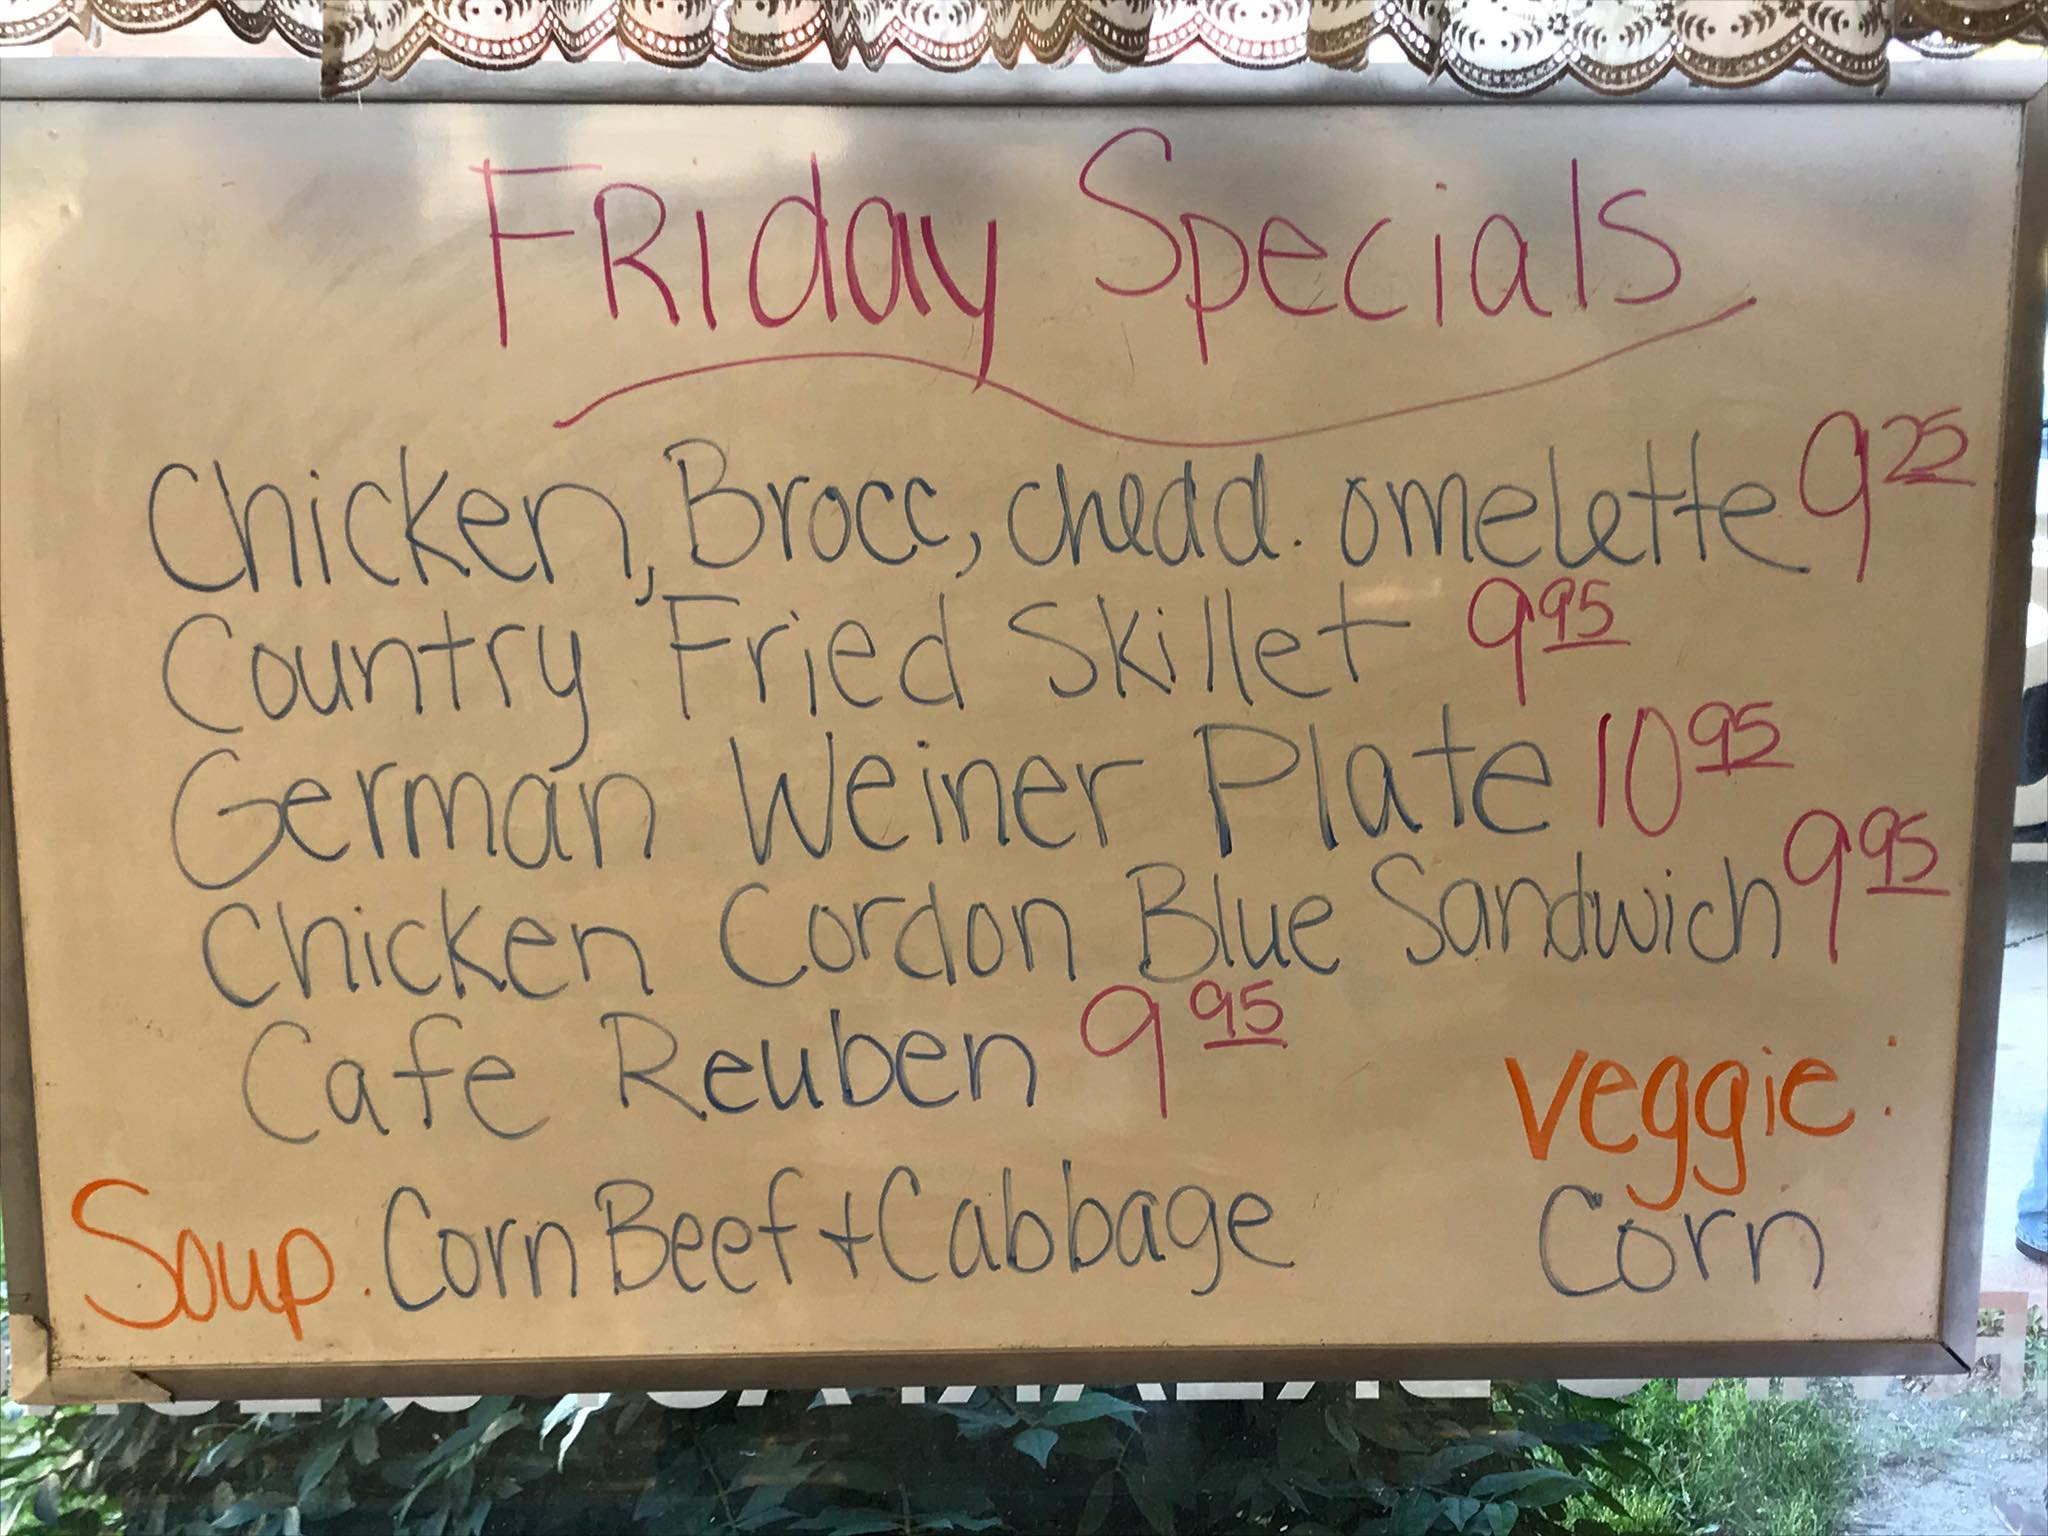 FRiday Specials
Chicken, Brocc, chedd. omelette 9 25
Country Fried Skillet 9 95
German Weiner Plate 10 95
Chicken Cordon Blue Sandwich 9 95
Cafe Reuben 9 95
Veggie:
Corn
Soup. Corn Beef + Cabbage